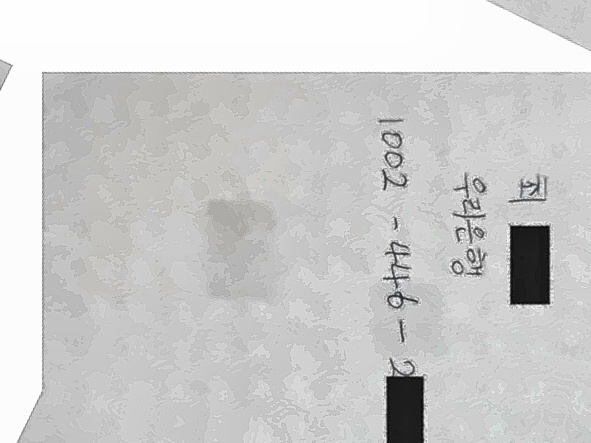 최
우리은행
1002-446-2